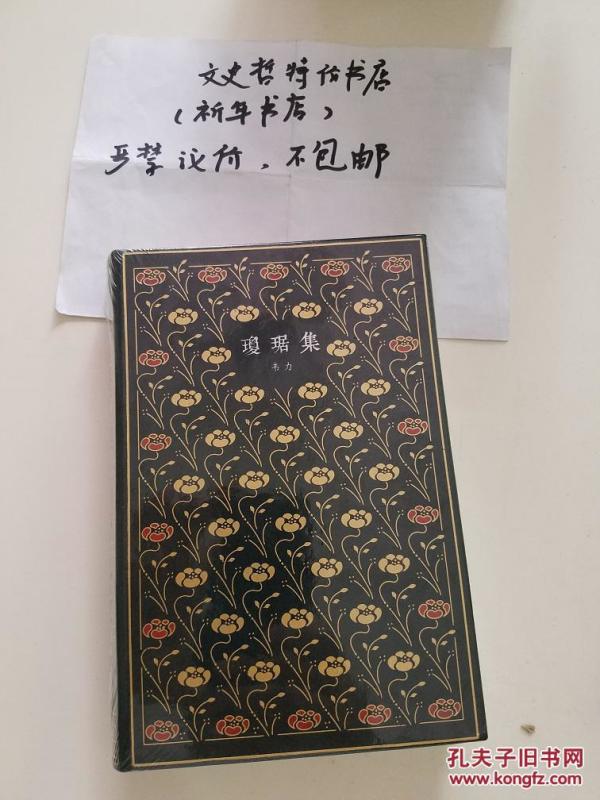 文史哲特价书店
（祈年书店）
严禁议价，不包邮
瓊琚集
韦力
孔夫子旧书网
www.kongfz.com